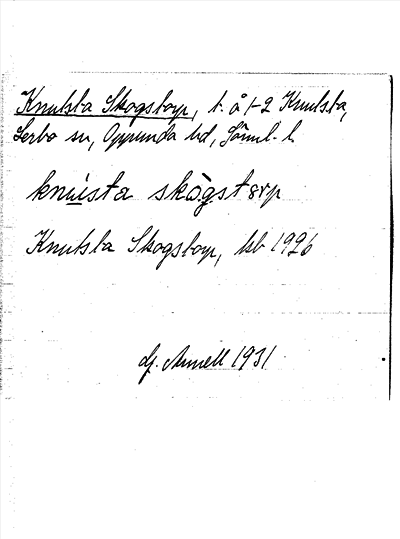 Knutsta Skogstorp, t. å 1-2 Knutsta,
Lerbo sn, Oppunda hd, Söml. l.
knùsta skògstɷrp
Knutsta Skogstorp, kb 1926
Gj. Annell 1931